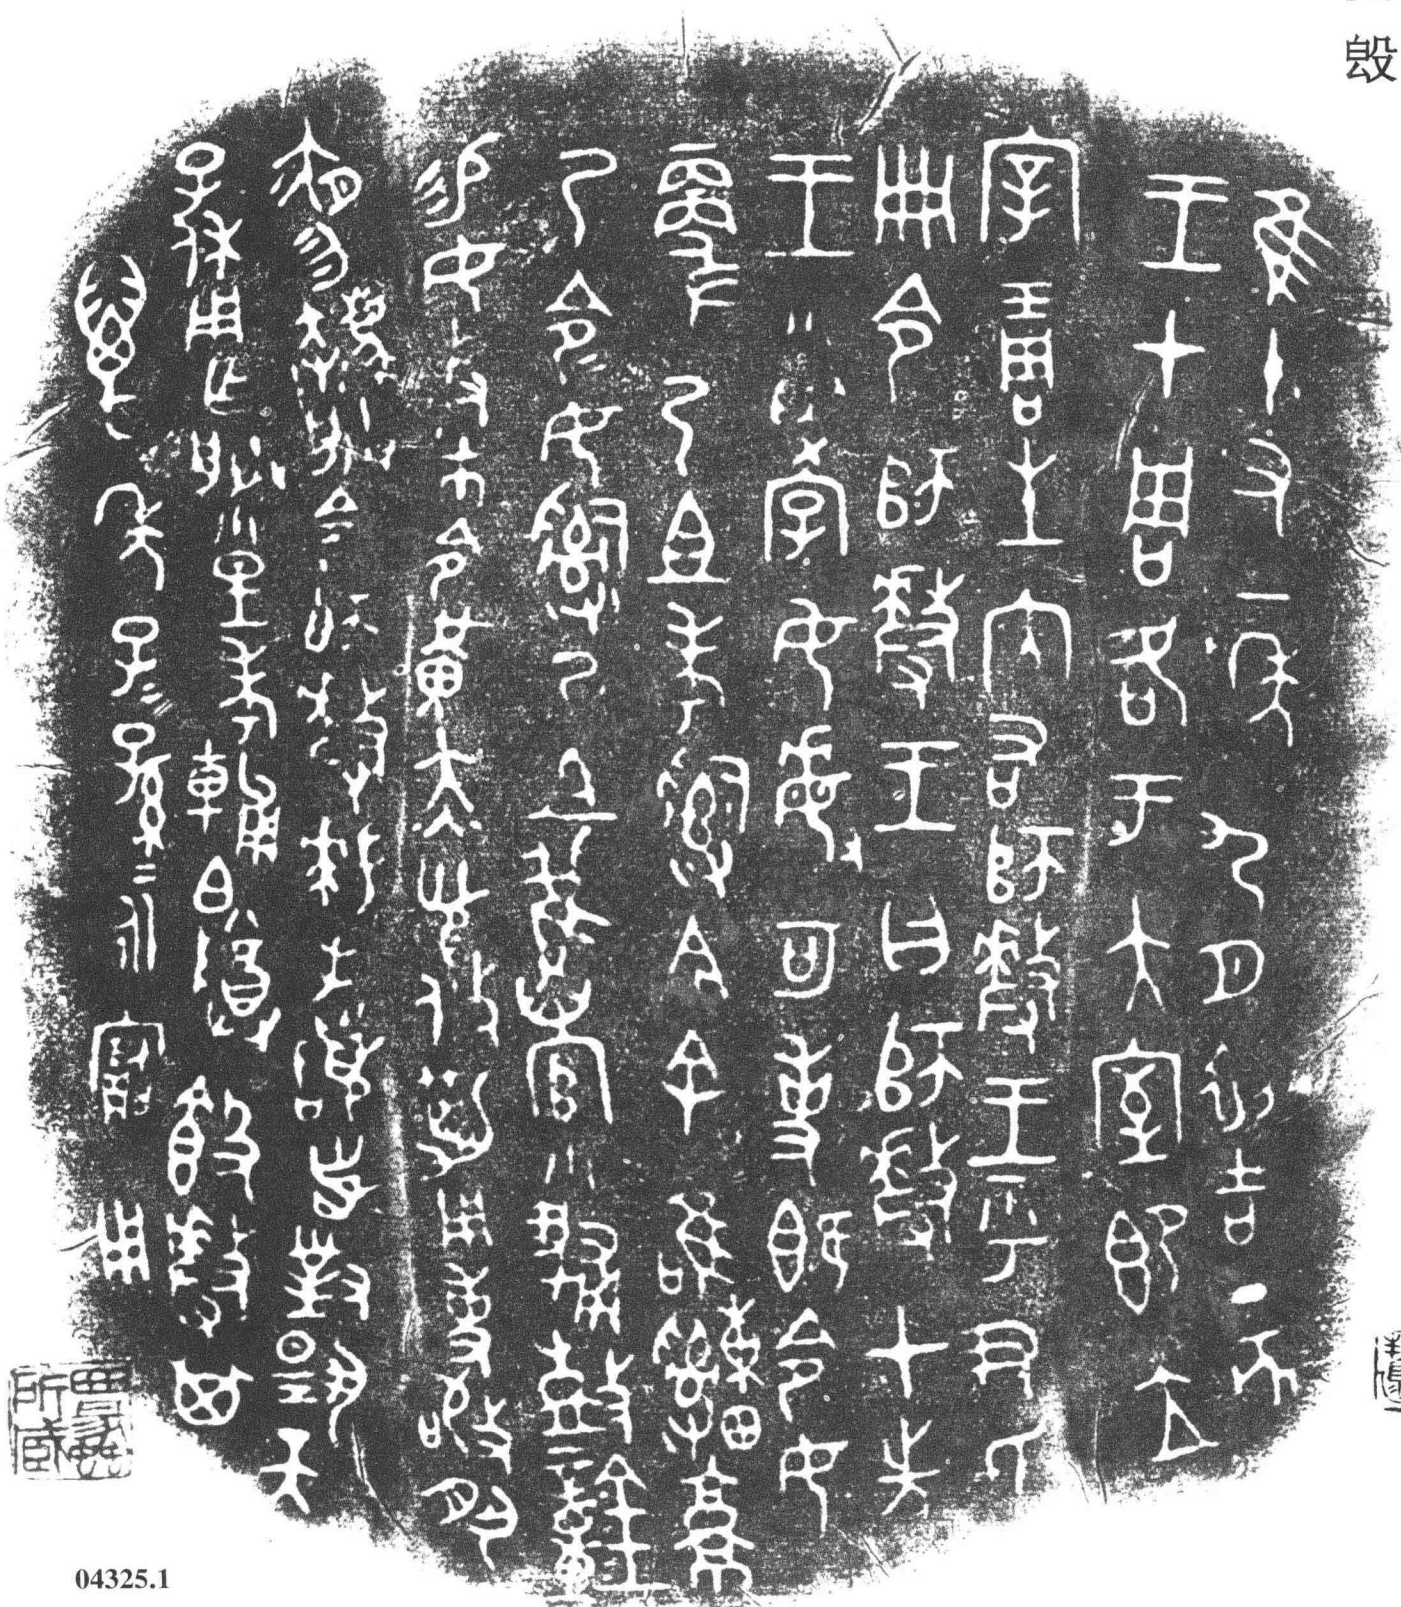 𣪕
隹十又一年九月初吉丁亥
王才周各于大室即立
宰琱生內右師𠭰王乎尹氏
冊令師𠭰王曰師𠭰才先
王小學女女敏可事既令女
更乃且考𤔲今余唯𤕌𩁹
乃令令女𤔲乃且舊官小輔鼓鐘
易女叔巿金黃赤舄攸勒用事敬夙
夜勿灋朕令師𠭰拜手𩒨首敢對揚天
子休用乍朕皇考輔白尊𣪕𠭰其
萬年子子孫孫永寶用
04325.1